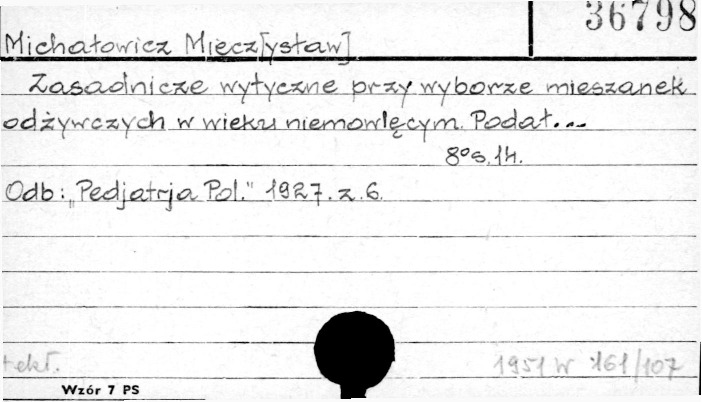 36798
Michałowicz Miecz[ysław]
Zasadnicze wytyczne przy wyborze mieszanek
odżywczych w wieku niemowlęcym. Podał...
8° s. 14.
Odb: "Pedjatrja Pol." 1927. z. 6.
tekł. 1951 W 161/107
Wzór 7 PS